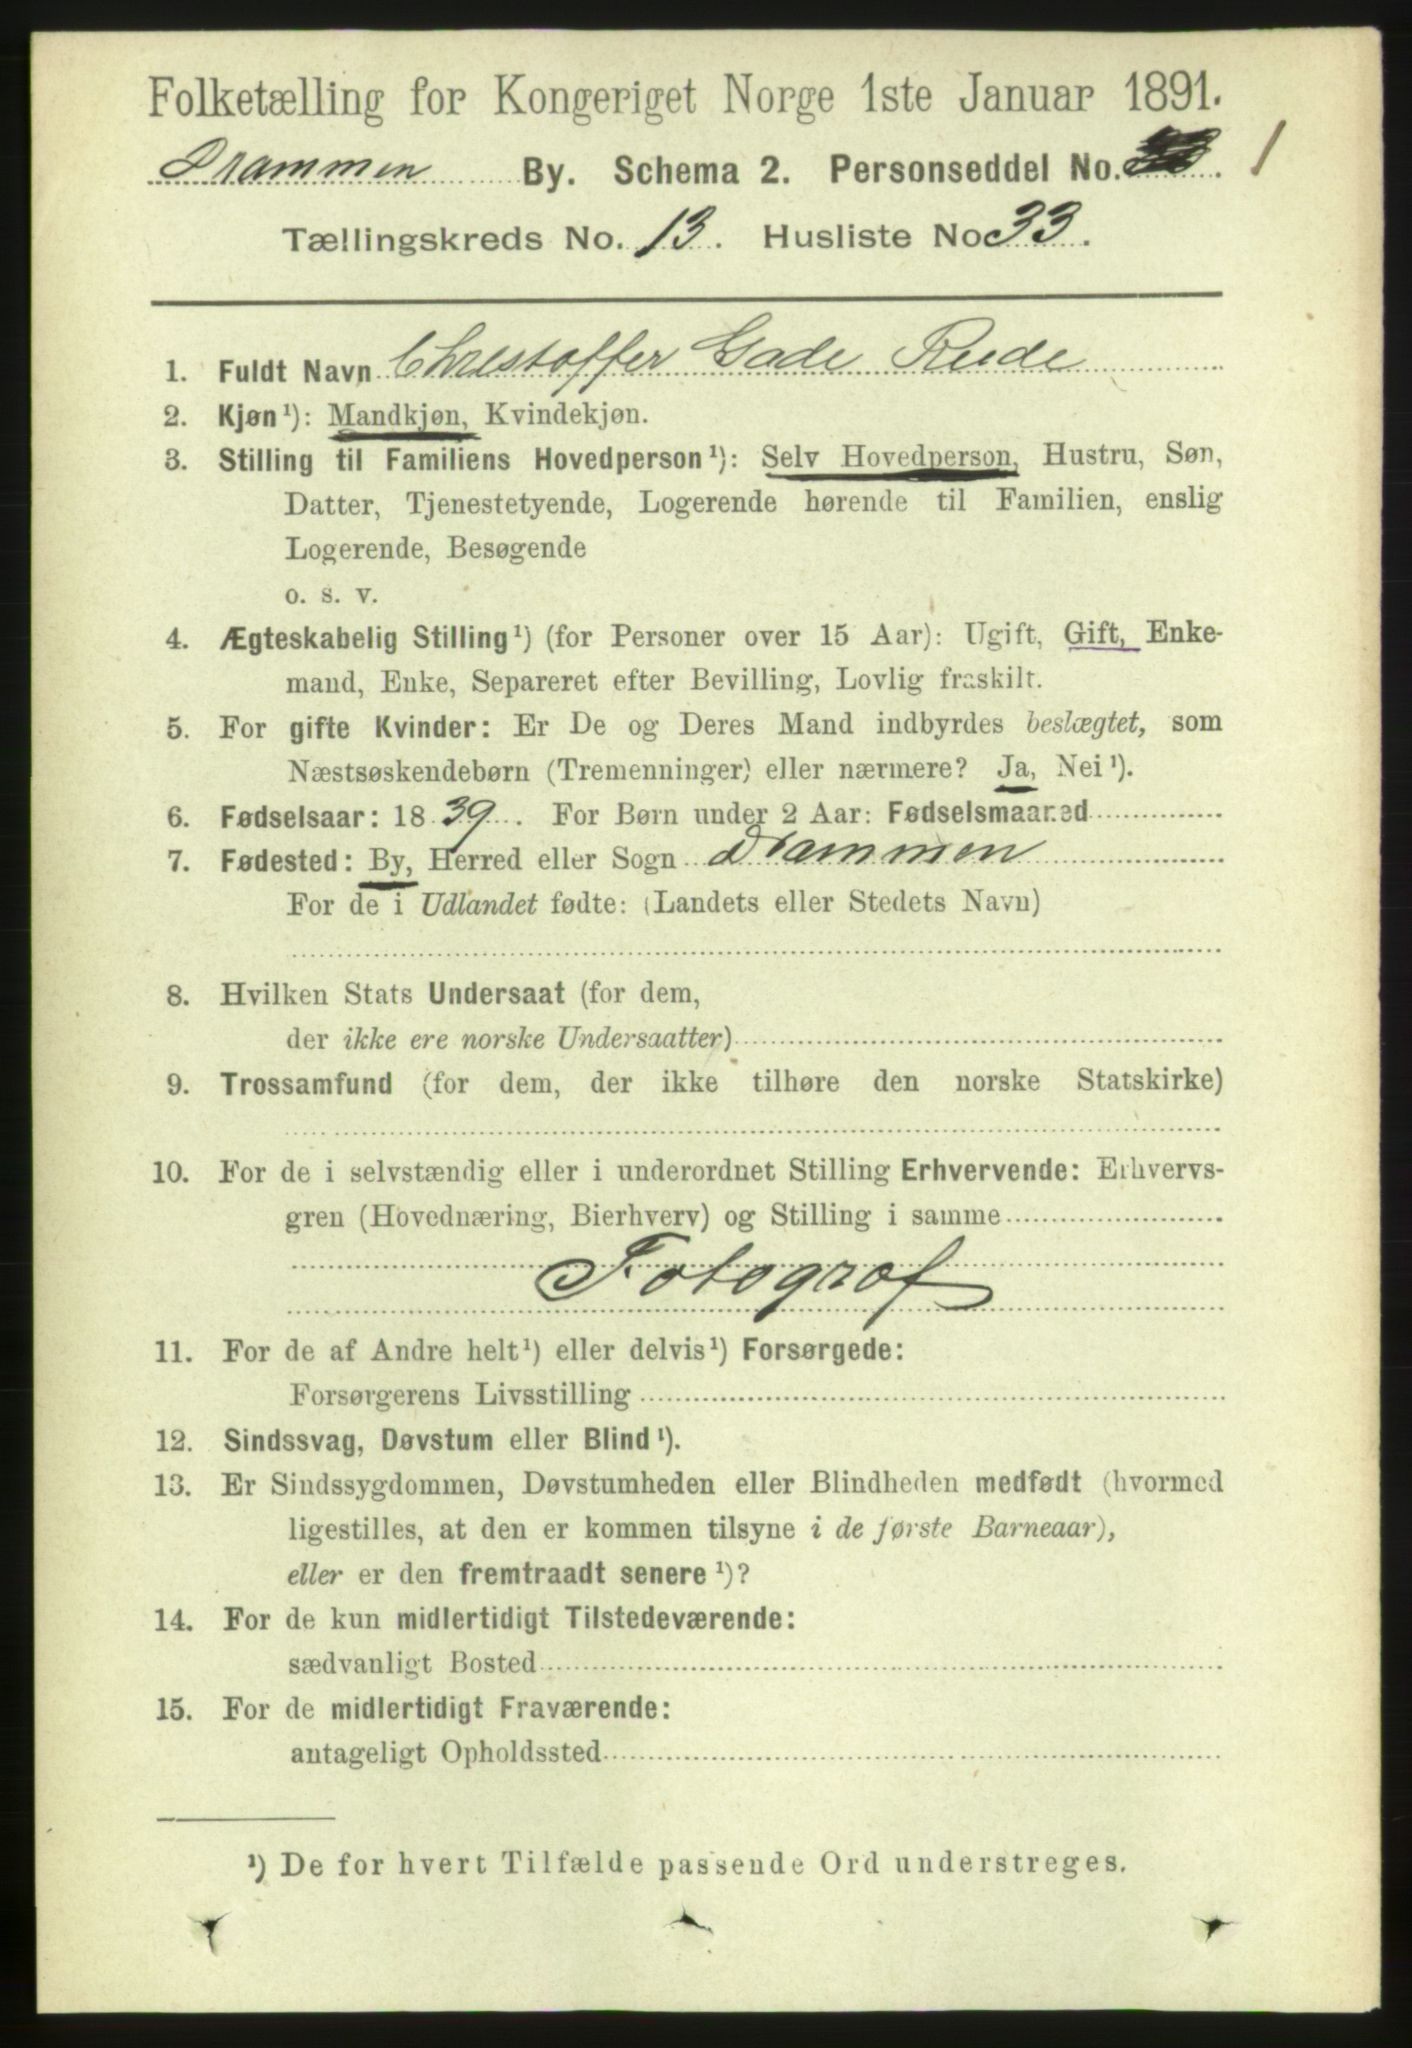 Folketælling for Kongeriget Norge 1ste Januar 1891.
Drammen By. Schema 2. Personseddel No. 1
Tællingskreds No. 13. Husliste No 33.
1. Fuldt Navn Christoffer Gade Rude
2. Kjøn¹): Mandkjøn, Kvindekjøn.
3. Stilling til Familiens Hovedperson¹): Selv Hovedperson, Hustru, Søn,
Datter, Tjenestetyende, Logerende hørende til Familien, enslig
Logerende, Besøgende
o. s. v.
4. Ægteskabelig Stilling¹) (for Personer over 15 Aar): Ugift, Gift, Enke-
mand, Enke, Separeret efter Bevilling, Lovlig fraskilt.
5. For gifte Kvinder: Er De og Deres Mand indbyrdes beslægtet, som
Næstsøskendebørn (Tremenninger) eller nærmere? Ja, Nei¹).
6. Fødselsaar: 1839. For Børn under 2 Aar: Fødselsmaaned
7. Fødested: By, Herred eller Sogn Drammen
For de i Udlandet fødte: (Landets eller Stedets Navn)
8. Hvilken Stats Undersaat (for dem,
der ikke ere norske Undersaatter)
9. Trossamfund (for dem, der ikke tilhøre den norske Statskirke)
10. For de i selvstændig eller i underordnet Stilling Erhvervende: Erhvervs-
gren (Hovednæring, Bierhverv) og Stilling i samme
Fotograf
11. For de af Andre helt¹) eller delvis¹) Forsørgede:
Forsørgerens Livsstilling
12. Sindssvag, Døvstum eller Blind¹).
13. Er Sindssygdommen, Døvstumheden eller Blindheden medfødt (hvormed
ligestilles, at den er kommen tilsyne i de første Barneaar),
eller er den fremtraadt senere¹)?
14. For de kun midlertidigt Tilstedeværende:
sædvanligt Bosted
15. For de midlertidigt Fraværende:
antageligt Opholdssted
¹) De for hvert Tilfælde passende Ord understreges.